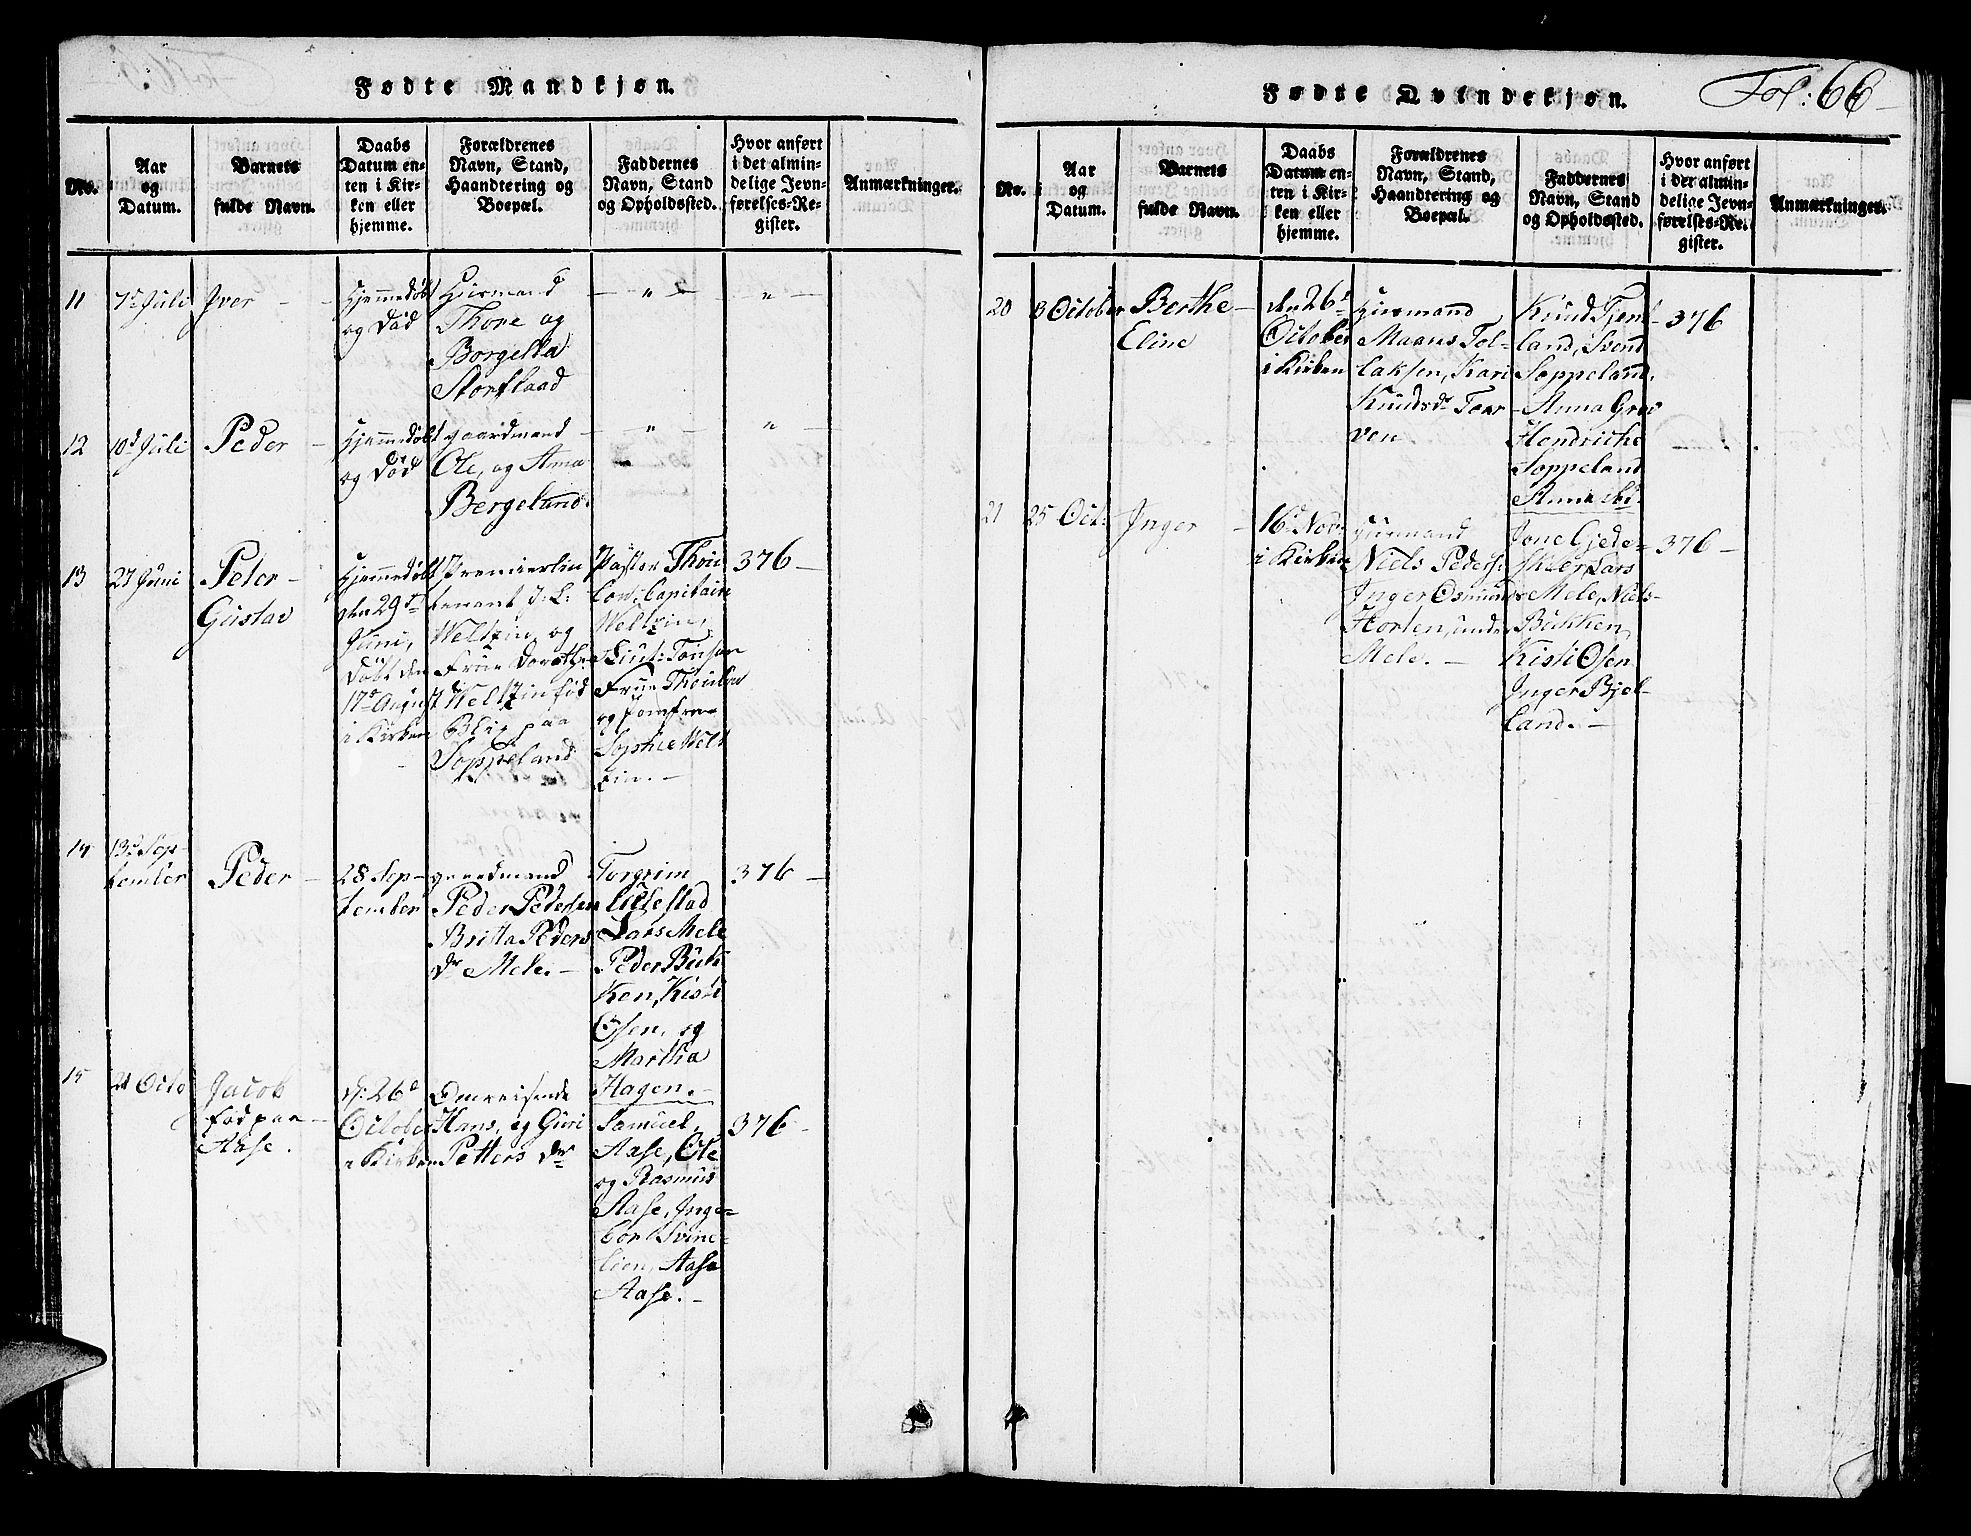 Fødte Mandkjøn.
No.
Aar
og
Datum.
Barnets
fulde Navn.
Daabs
Datum en-
ten i Kir-
ken eller
hjemme.
Forældrenes
Navn, Stand,
Haandtering og
Boepæl.
Faddernes
Navn, Stand
og Opholdssted.
Hvor anført
i det almin-
delige Jevn-
førelses-Re-
gister.
Anmærkninger.
11
7d Juli
Iver -
Hjemmedøbt
og Død
Huusmand
Thore og
Borgilla
Storflaad
- " -
- " -
12
10d Juli
Peder -
Hjemmedøbt
og Død
gaardmand
Ole, og Anna
Bergeland.
- " -
"
13
27 Juni
Peter -
Gustav
Hjemmedøbt
den 29de
Juni,
Døbt den
17d August
i Kirken
Premierlieu
tenant J. L:
Weltzin, og
Frue Dorothe
Weltzin fød
paa
Soppeland
Pastor
Capitain
Weltzin,
Lieut: Tonsen
Frue
og Jomfrue
Sophie Welt
zin. -
376 -
14
13d Sep-
tember
Peder -
28 Sep-
tember
gaardmand
Peder Pedersen
Britta Peders
Dr Mele. -
Torgrim
Lillestad
Lars Mele
Peder Buk
ken, Kisti
Osen, og
Martha
Hagen. -
376 -
15
21 Octo
Jacob
fød paa -
Aase.
d: 26d
October
i Kirken
Omreisende
Hans, og Guri
Petters Dr
Samuel,
Aase, Ole
og Rasmus
Aase, Inge-
bor Svine-
lien, Aase
Aase. -
376 -
Fødte Qvindekjøn.
Fol: 66 -
No.
Aar
og
Datum.
Barnets
fulde Navn.
Daabs
Datum en-
ten i Kir-
ken eller
hjemme.
Forældrenes
Navn, Stand,
Haandtering og
Boepæl.
Faddernes
Navn, Stand
og Opholdssted.
Hvor anført
i det almin-
delige Jevn-
førelses-Re-
gister.
Anmærkninger.
20
8 October
Berthe -
Eline
den 26d
October
i Kirken
Huusmand
Maans Tol-
laksen, Kari
Knudsdr
ven
Knud Tjent
land, Svend
Soppeland,
Anna
Hendriche
Soppeland
Anna
376
21
25 Oct:
Inger -
16d Nov:
i Kirken
Huusmand
Niels Peders:
Inger Osmunds
Horten, under
Mele. -
Jone Gjede-
Lars
Mele, Niels
Bukken,
Kisti Osen
Inger Bjel-
land. -
376 -